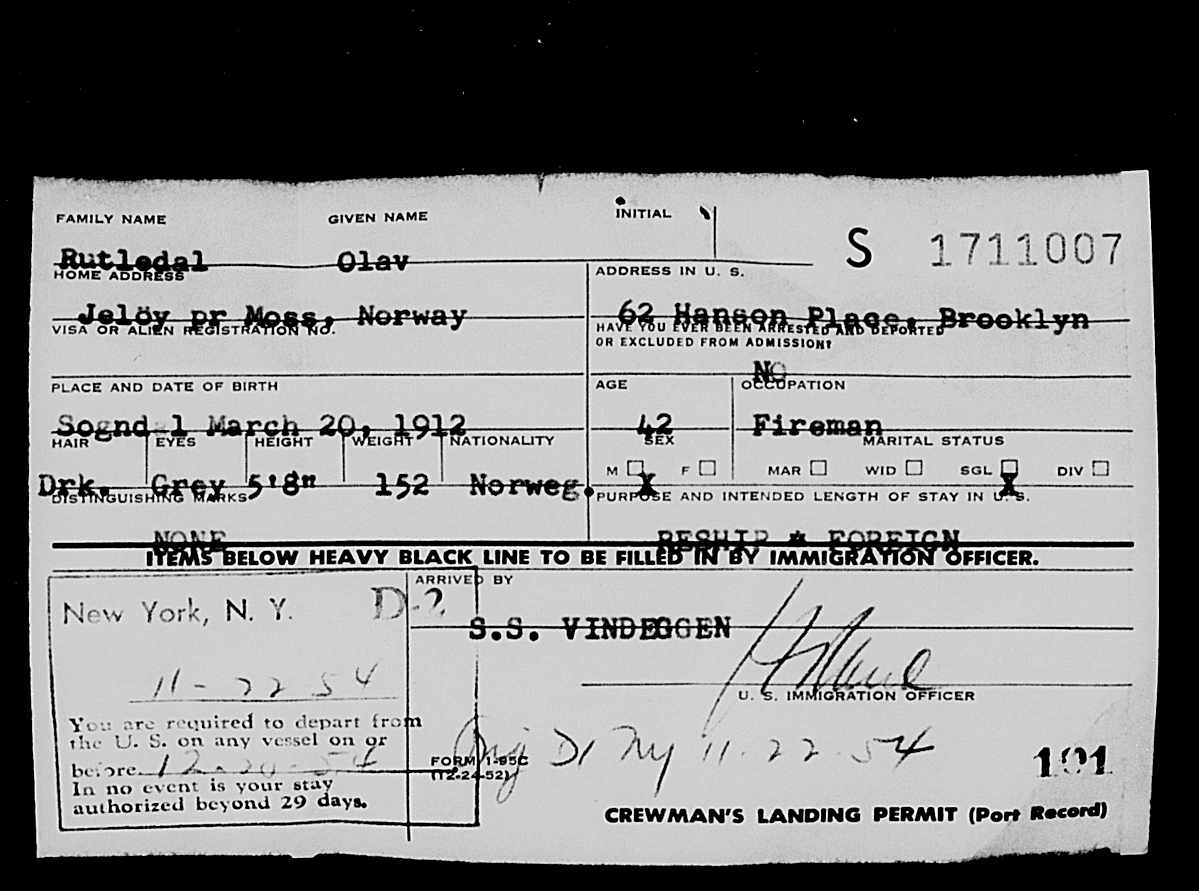 FAMILY NAME GIVEN NAME INITIAL
Rutledal Olav S 1711007
HOME ADDRESS ADDRESS IN U. S.
Jelöy pr Moss, Norway 62 Hanson Place, Brooklyn
VISA OR ALIEN REGISTRATION NO. HAVE YOU EVER BEEN ARRESTED AND DEPORTED
OR EXCLUDED FROM ADMISSION?
NO
PLACE AND DATE OF BIRTH AGE OCCUPATION
Sognd l March 20, 1912 42 Fireman
HAIR EYES HEIGHT WEIGHT NATIONALITY SEX MARITAL STATUS
M F MAR WID SGL DIV
Drk. Grey 5'8" 152 Norweg. X X
DISTINGUISHING MARKS PURPOSE AND INTENDED LENGTH OF STAY IN U. S.
NONE RESHIP * FOREIGN
ITEMS BELOW HEAVY BLACK LINE TO BE FILLED IN BY IMMIGRATION OFFICER.
ARRIVED BY
New York, N. Y. D-2
S.S. VINDEGGEN
11-22 54
U. S. IMMIGRATION OFFICER
You are required to depart from
the U. S. on any vessel on or
before 12-20-54
In no event is your stay
authorized beyond 29 days.
FORM I-95C
(12-24-52)
Orig D1 NY 11-22-54
101
CREWMAN'S LANDING PERMIT (Port Record)